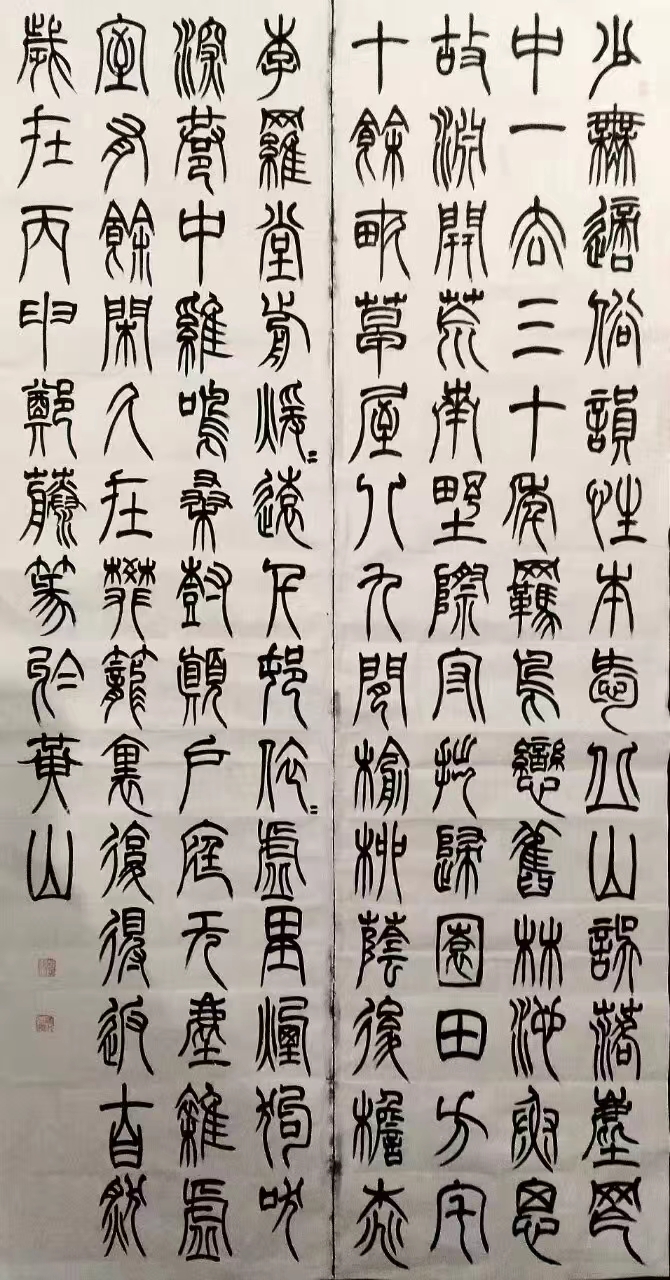 少無適俗韻性本愛丘山誤落塵网
中一去三十年羈鳥戀舊林池魚思
故淵開荒南野際守拙歸園田方宅
十餘畝草屋八九間榆柳蔭後檐桃
李羅堂前煖〻遠人邨依〻虛里煙狗吠
深巷中雞鳴桑樹顛戶庭无塵雜虛
室有餘閑久在樊籠裏復得返自然
歲在丙申鄭藤篆於黃山